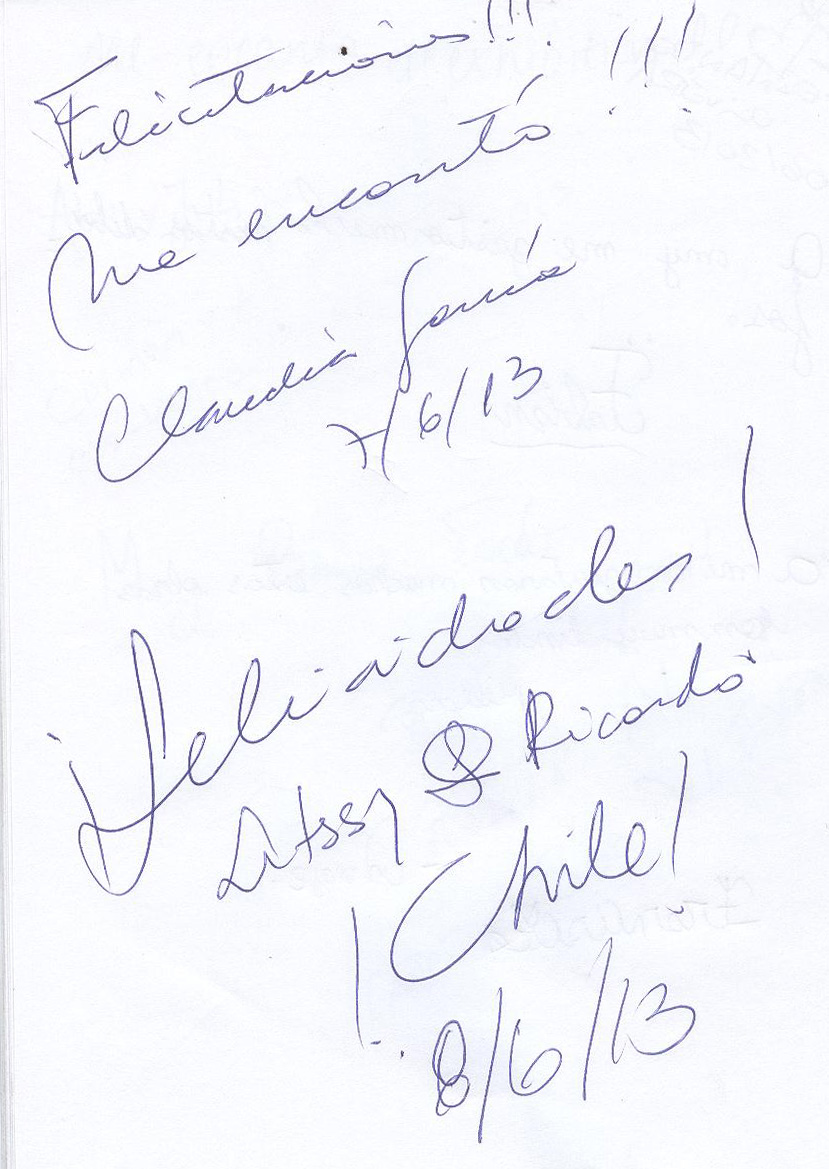 Felicitaciones!!!
Me encantó !!!
Claudia García
7/6/13
¡Felicidades!
& Ricardo
¡Chile!
8/6/13